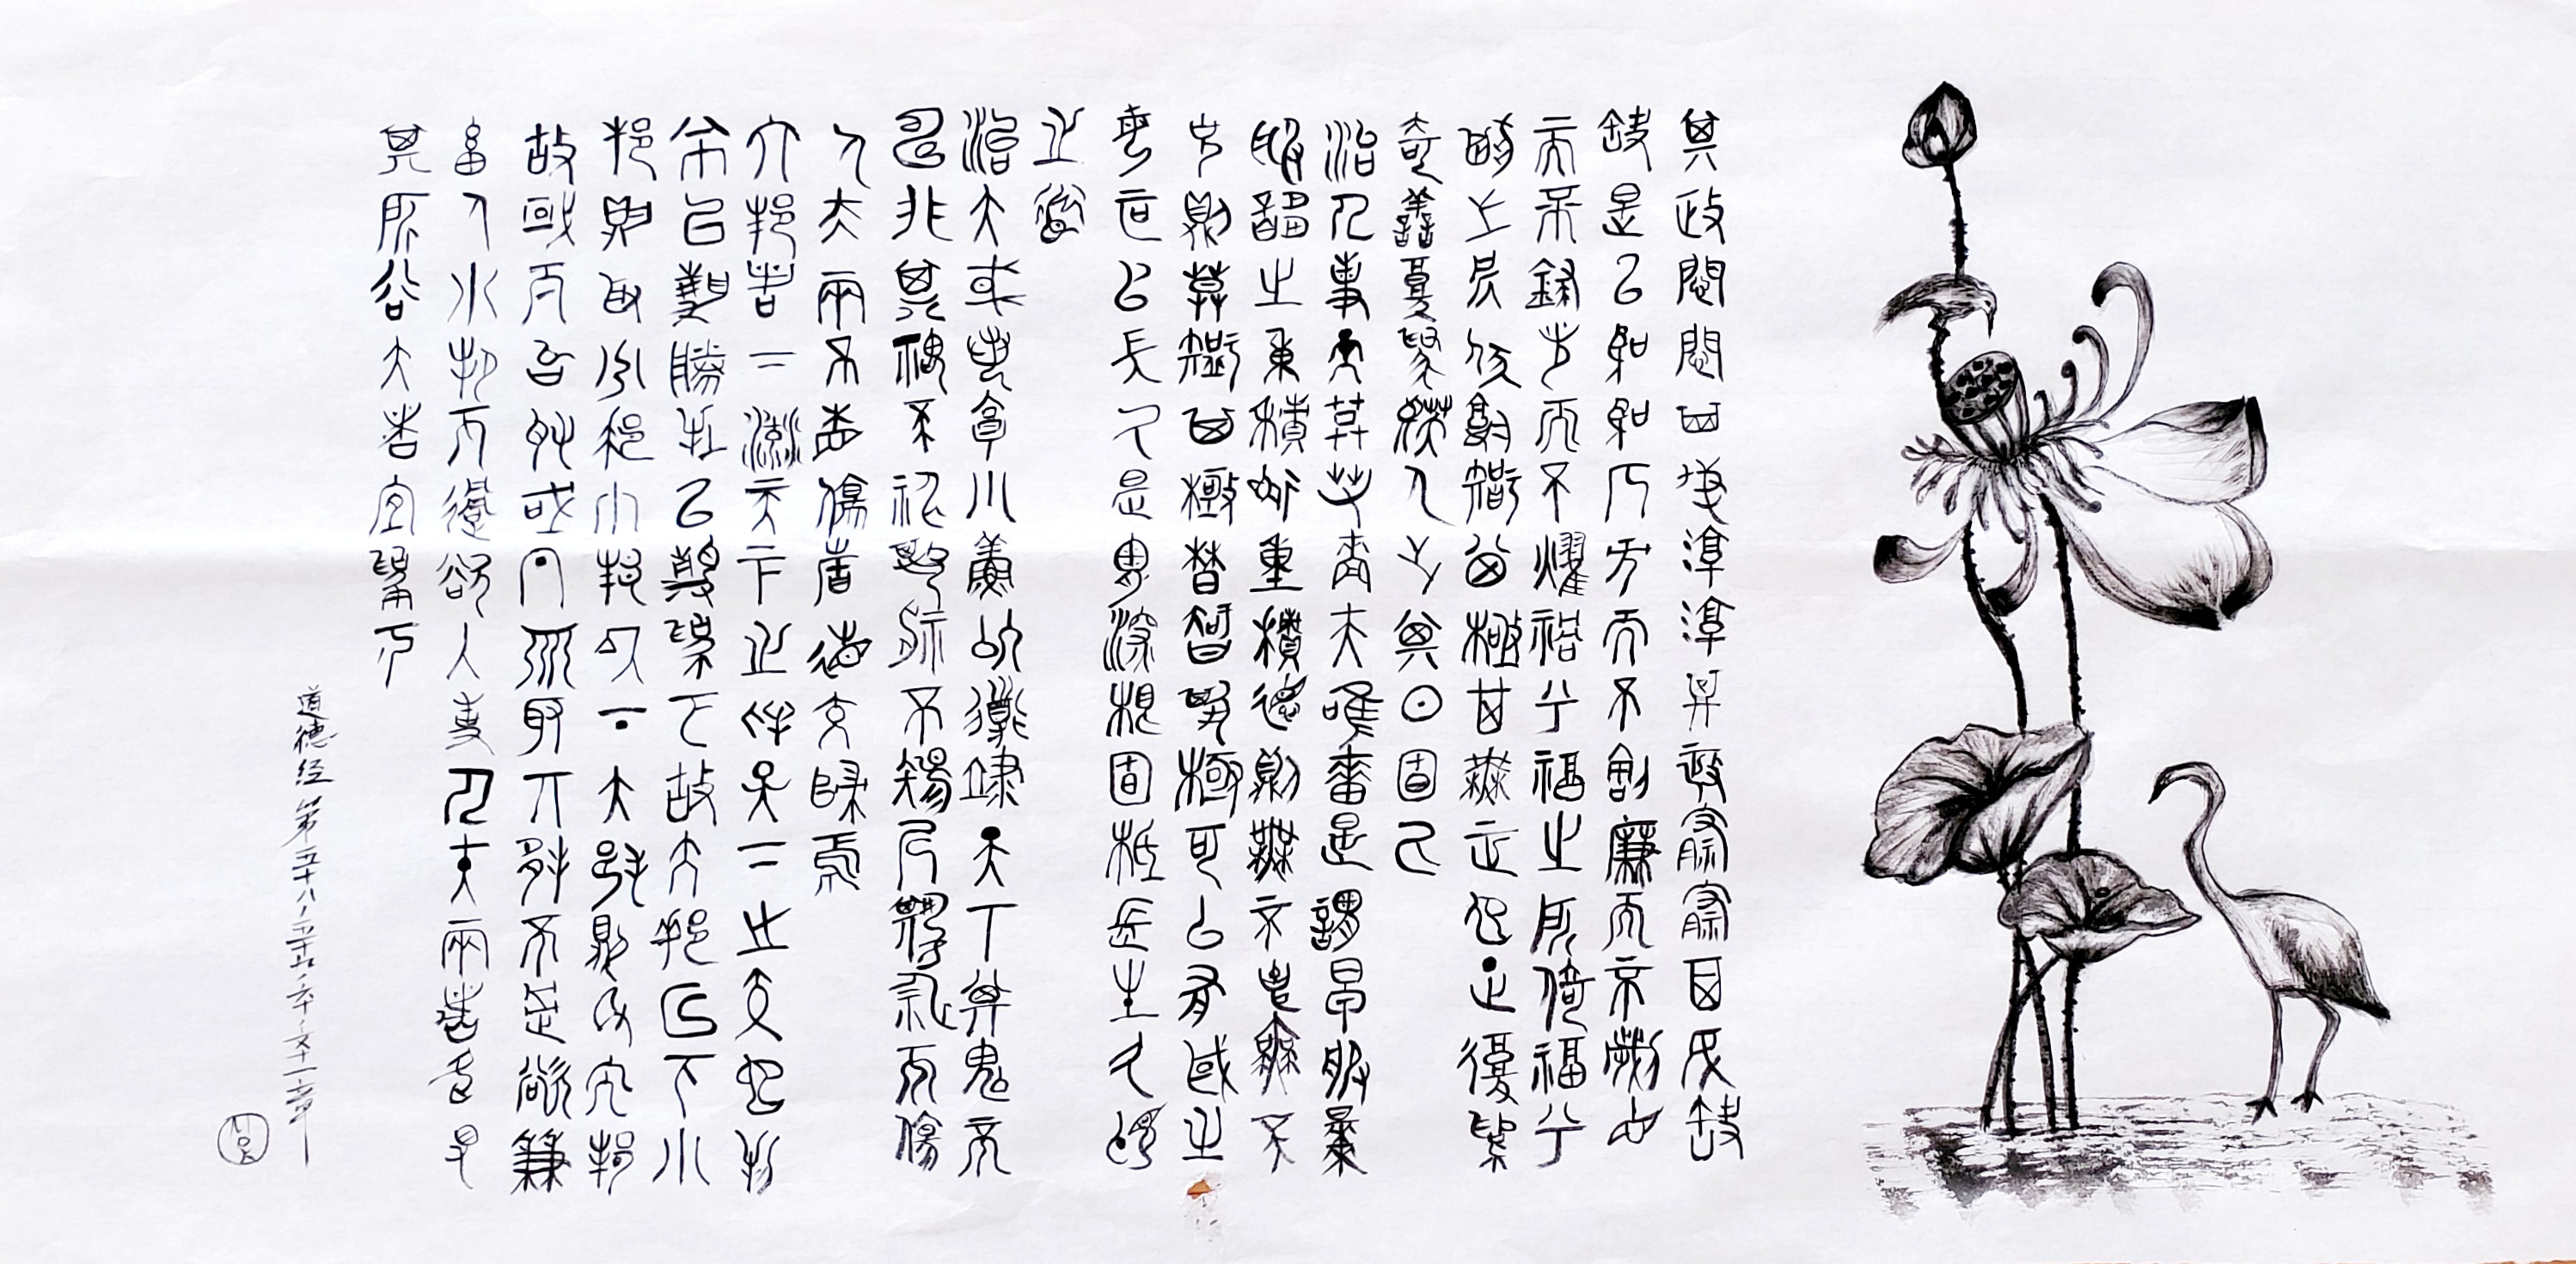 其政閔閔其民淳淳其政察察其民缺
缺是以方而不割廉而不劌直
而不肆光而不耀禍兮福之所倚福兮
禍之所伏孰知其極其無正也正復為
奇善復為妖人之迷其日固久
治人事天莫若嗇夫唯嗇是謂早服早
服謂之重積德重積德則無不克無不
克則莫知其極莫知其極可以有國之
母可以長久是謂深根固柢長生久視
之道
治大國若烹小鮮以道蒞天下其鬼不
神非其鬼不神其神不傷人非其神不傷
人夫兩不相傷故德交歸焉
大邦者下流天下之牝天下之交也牝
常以靜勝牡以靜為下故大邦以下小
邦則取小邦小邦以下大邦則取大邦
故或下以取或下而取大邦不過欲兼
畜人小邦不過欲入事人夫兩者各得
其所欲大者宜為下
道德经第五十八、五十九、六十、六十一章